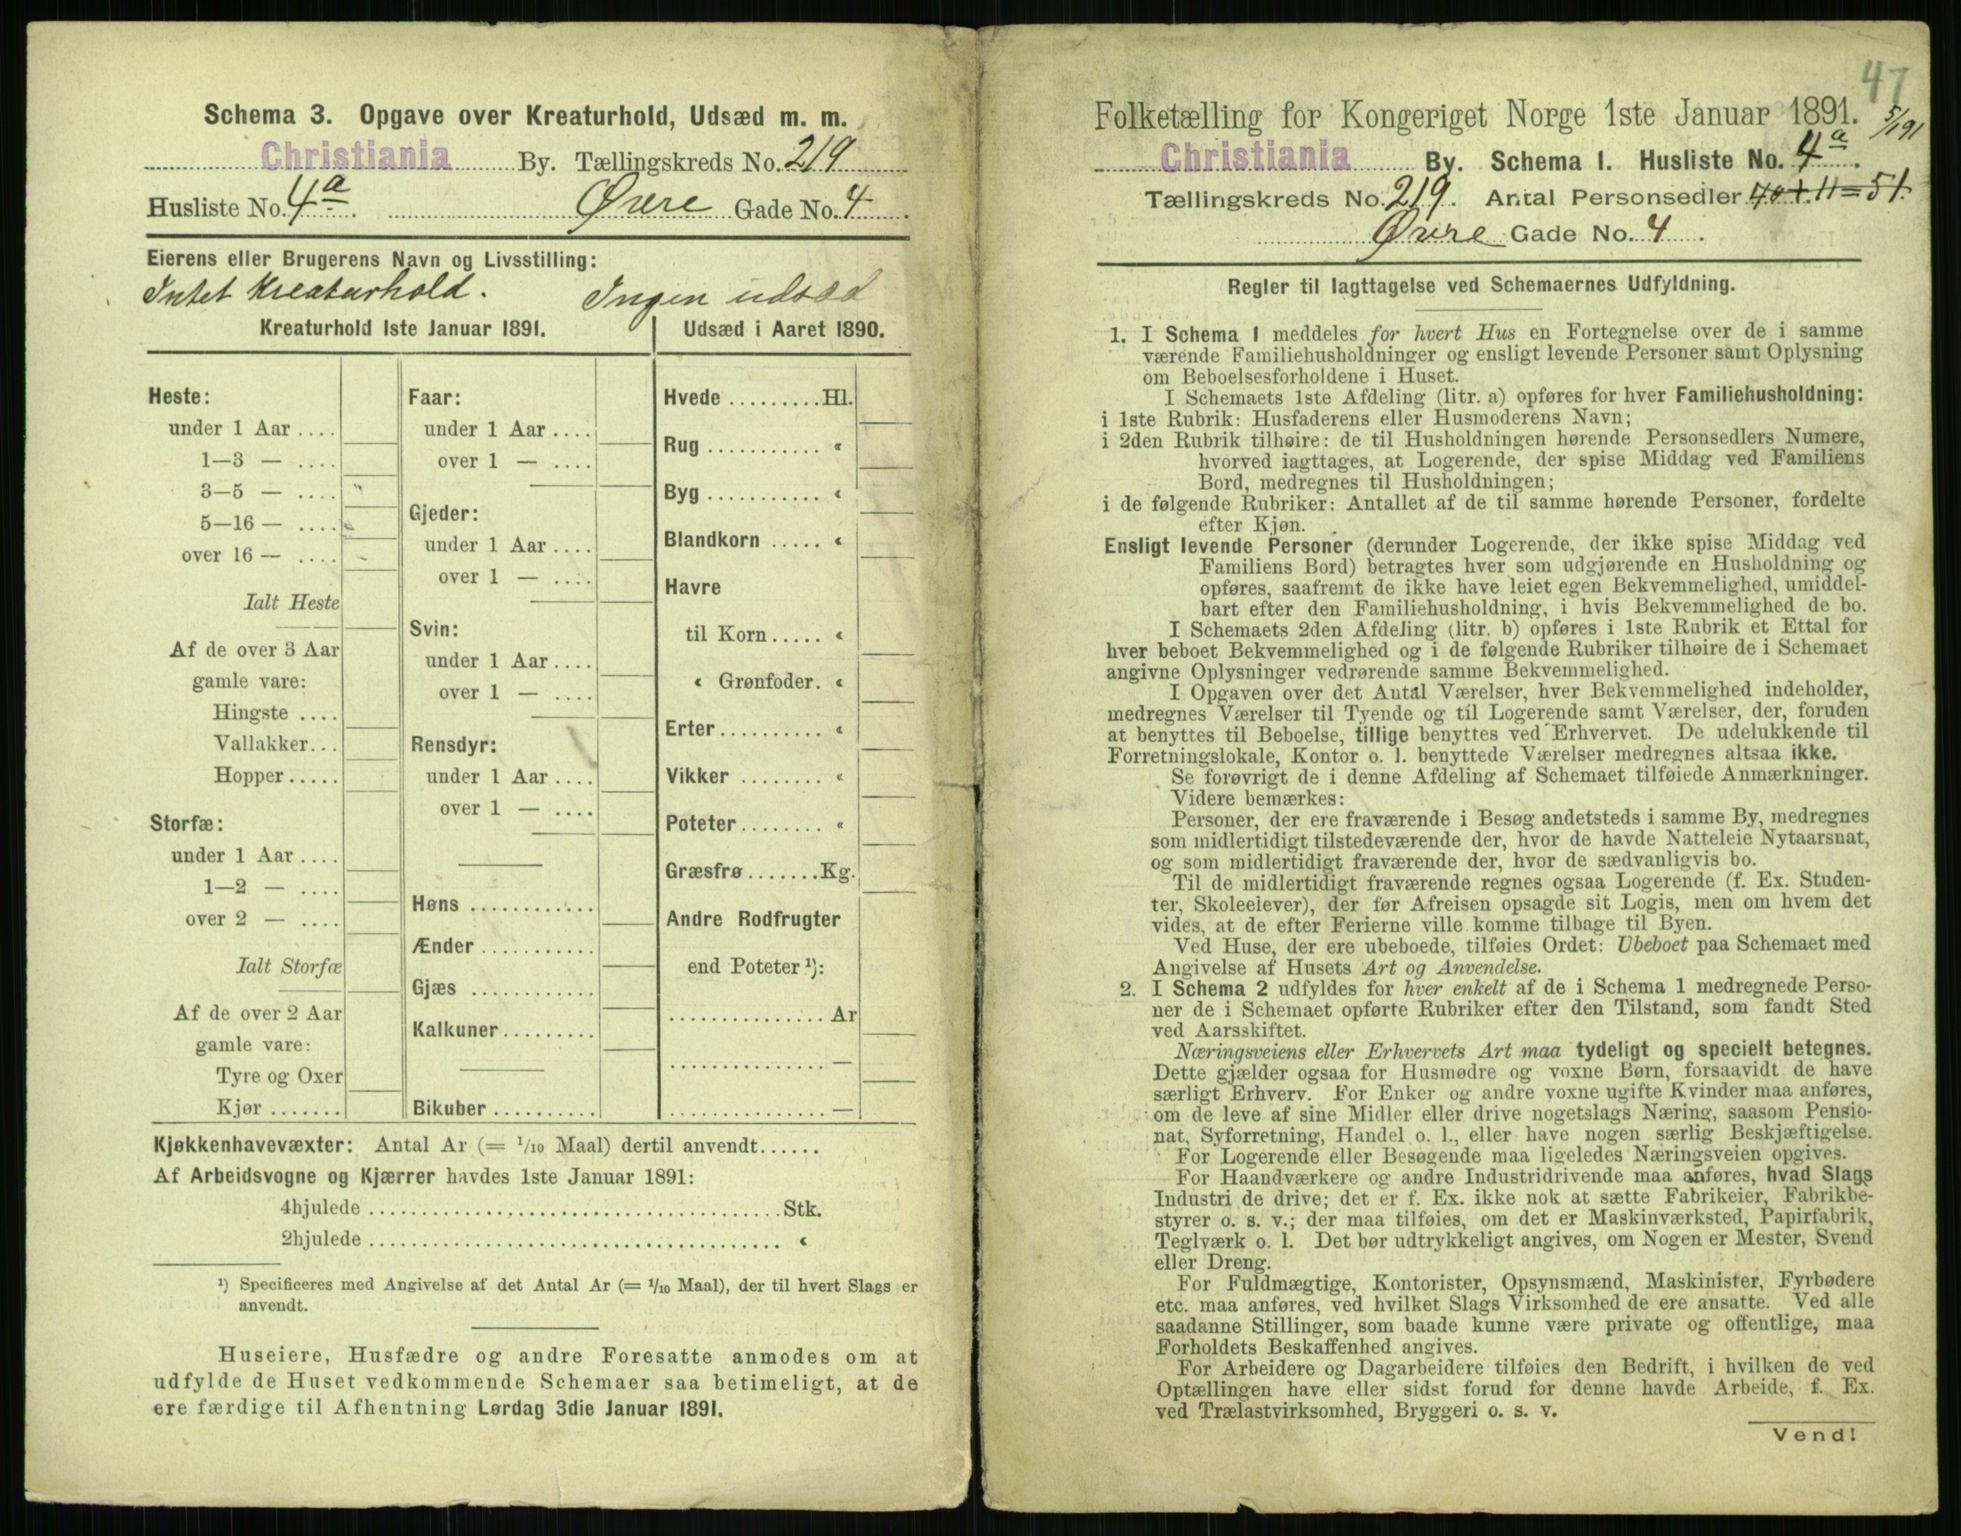 Schema 3. Opgave over Kreaturhold, Udsæd m. m.
Christiania By. Tællingskreds No. 219
Husliste No. 4a. Øvre Gade No. 4.
Eierens eller Brugerens Navn og Livsstilling:
Intet Kreaturhold. Ingen udsæd
Kreaturhold 1ste Januar 1891.
Heste:
under 1 Aar ....
1—3 — ....
3—5 — ....
5—16 — ....
over 16 — ....
Ialt Heste
Af de over 3 Aar
gamle vare:
Hingste ....
Vallakker...
Hopper.....
Storfæ:
under 1 Aar ....
1—2 — ....
over 2 — ....
Ialt Storfæ
Af de over 2 Aar
gamle vare:
Tyre og Oxer
Kjør .......
Faar:
under 1 Aar ....
over 1 — ....
Gjeder:
under 1 Aar ....
over 1 — ....
Svin:
under 1 Aar ....
over 1 — ....
Rensdyr:
under 1 Aar ....
over 1 — ....
Høns ............
Ænder ...........
Gjæs ............
Kalkuner.........
Bikuber ..........
Udsæd i Aaret 1890.
Hvede .........Hl.
Rug ........... «
Byg ........... «
Blandkorn ..... «
Havre
til Korn ..... «
« Grønfoder. «
Erter.......... «
Vikker ........ «
Poteter ........ «
Græsfrø .......Kg.
Andre Rodfrugter
end Poteter ¹):
............... Ar
............... —
............... —
Kjøkkenhavevæxter: Antal Ar (= 1/10 Maal) dertil anvendt......
Af Arbeidsvogne og Kjærrer havdes 1ste Januar 1891:
4hjulede ........................................ Stk.
2hjulede ........................................ «
¹) Specificeres med Angivelse af det Antal Ar (= 1/10 Maal), der til hvert Slags er
anvendt.
Huseiere, Husfædre og andre Foresatte anmodes om at
udfylde de Huset vedkommende Schemaer saa betimeligt, at de
ere færdige til Afhentning Lørdag 3die Januar 1891.
47
Folketælling for Kongeriget Norge 1ste Januar 1891.
5/1 91
Christiania By. Schema 1. Husliste No. 4a.
Tællingskreds No. 219. Antal Personsedler 40 + 11 = 51.
Øvre Gade No. 4.
Regler til Iagttagelse ved Schemaernes Udfyldning.
1. I Schema 1 meddeles for hvert Hus en Fortegnelse over de i samme
værende Familiehusholdninger og ensligt levende Personer samt Oplysning
om Beboelsesforholdene i Huset.
I Schemaets 1ste Afdeling (litr. a) opføres for hver Familiehusholdning:
i 1ste Rubrik: Husfaderens eller Husmoderens Navn;
i 2den Rubrik tilhøire: de til Husholdningen hørende Personsedlers Numere,
hvorved iagttages, at Logerende, der spise Middag ved Familiens
Bord, medregnes til Husholdningen;
i de følgende Rubriker: Antallet af de til samme hørende Personer, fordelte
efter Kjøn.
Ensligt levende Personer (derunder Logerende, der ikke spise Middag ved
Familiens Bord) betragtes hver som udgjørende en Husholdning og
opføres, saafremt de ikke have leiet egen Bekvemmelighed, umiddel-
bart efter den Familiehusholdning, i hvis Bekvemmelighed de bo.
I Schemaets 2den Afdeling (litr. b) opføres i 1ste Rubrik et Ettal for
hver beboet Bekvemmelighed og i de følgende Rubriker tilhøire de i Schemaet
angivne Oplysninger vedrørende samme Bekvemmelighed.
I Opgaven over det Antal Værelser, hver Bekvemmelighed indeholder,
medregnes Værelser til Tyende og til Logerende samt Værelser, der, foruden
at benyttes til Beboelse, tillige benyttes ved Erhvervet. De udelukkende til
Forretningslokale, Kontor o. l. benyttede Værelser medregnes altsaa ikke.
Se forøvrigt de i denne Afdeling af Schemaet tilføiede Anmærkninger.
Videre bemærkes:
Personer, der ere fraværende i Besøg andetsteds i samme By, medregnes
som midlertidigt tilstedeværende der, hvor de havde Natteleie Nytaarsnat,
og som midlertidigt fraværende der, hvor de sædvanligvis bo.
Til de midlertidigt fraværende regnes ogsaa Logerende (f. Ex. Studen-
ter, Skoleelever), der før Afreisen opsagde sit Logis, men om hvem det
vides, at de efter Ferierne ville komme tilbage til Byen.
Ved Huse, der ere ubeboede, tilføies Ordet: Ubeboet paa Schemaet med
Angivelse af Husets Art og Anvendelse.
2. I Schema 2 udfyldes for hver enkelt af de i Schema 1 medregnede Perso-
ner de i Schemaet opførte Rubriker efter den Tilstand, som fandt Sted
ved Aarsskiftet.
Næringsveiens eller Erhvervets Art maa tydeligt og specielt betegnes.
Dette gjælder ogsaa for Husmødre og voxne Børn, forsaavidt de have
særligt Erhverv. For Enker og andre voxne ugifte Kvinder maa anføres,
om de leve af sine Midler eller drive nogetslags Næring, saasom Pensio-
nat, Syforretning, Handel o. l., eller have nogen særlig Beskjæftigelse.
For Logerende eller Besøgende maa ligeledes Næringsveien opgives.
For Haandværkere og andre Industridrivende maa anføres, hvad Slags
Industri de drive; det er f. Ex. ikke nok at sætte Fabrikeier, Fabrikbe-
styrer o. s. v.; der maa tilføies, om det er Maskinværksted, Papirfabrik,
Teglværk o. l. Det bør udtrykkeligt angives, om Nogen er Mester, Svend
eller Dreng.
For Fuldmægtige, Kontorister, Opsynsmænd, Maskinister, Fyrbødere
etc. maa anføres, ved hvilket Slags Virksomhed de ere ansatte. Ved alle
saadanne Stillinger, som baade kunne være private og offentlige, maa
Forholdets Beskaffenhed angives.
For Arbeidere og Dagarbeidere tilføies den Bedrift, i hvilken de ved
Optællingen have eller sidst forud for denne havde Arbeide, f. Ex.
ved Trælastvirksomhed, Bryggeri o. s. v.
Vend!